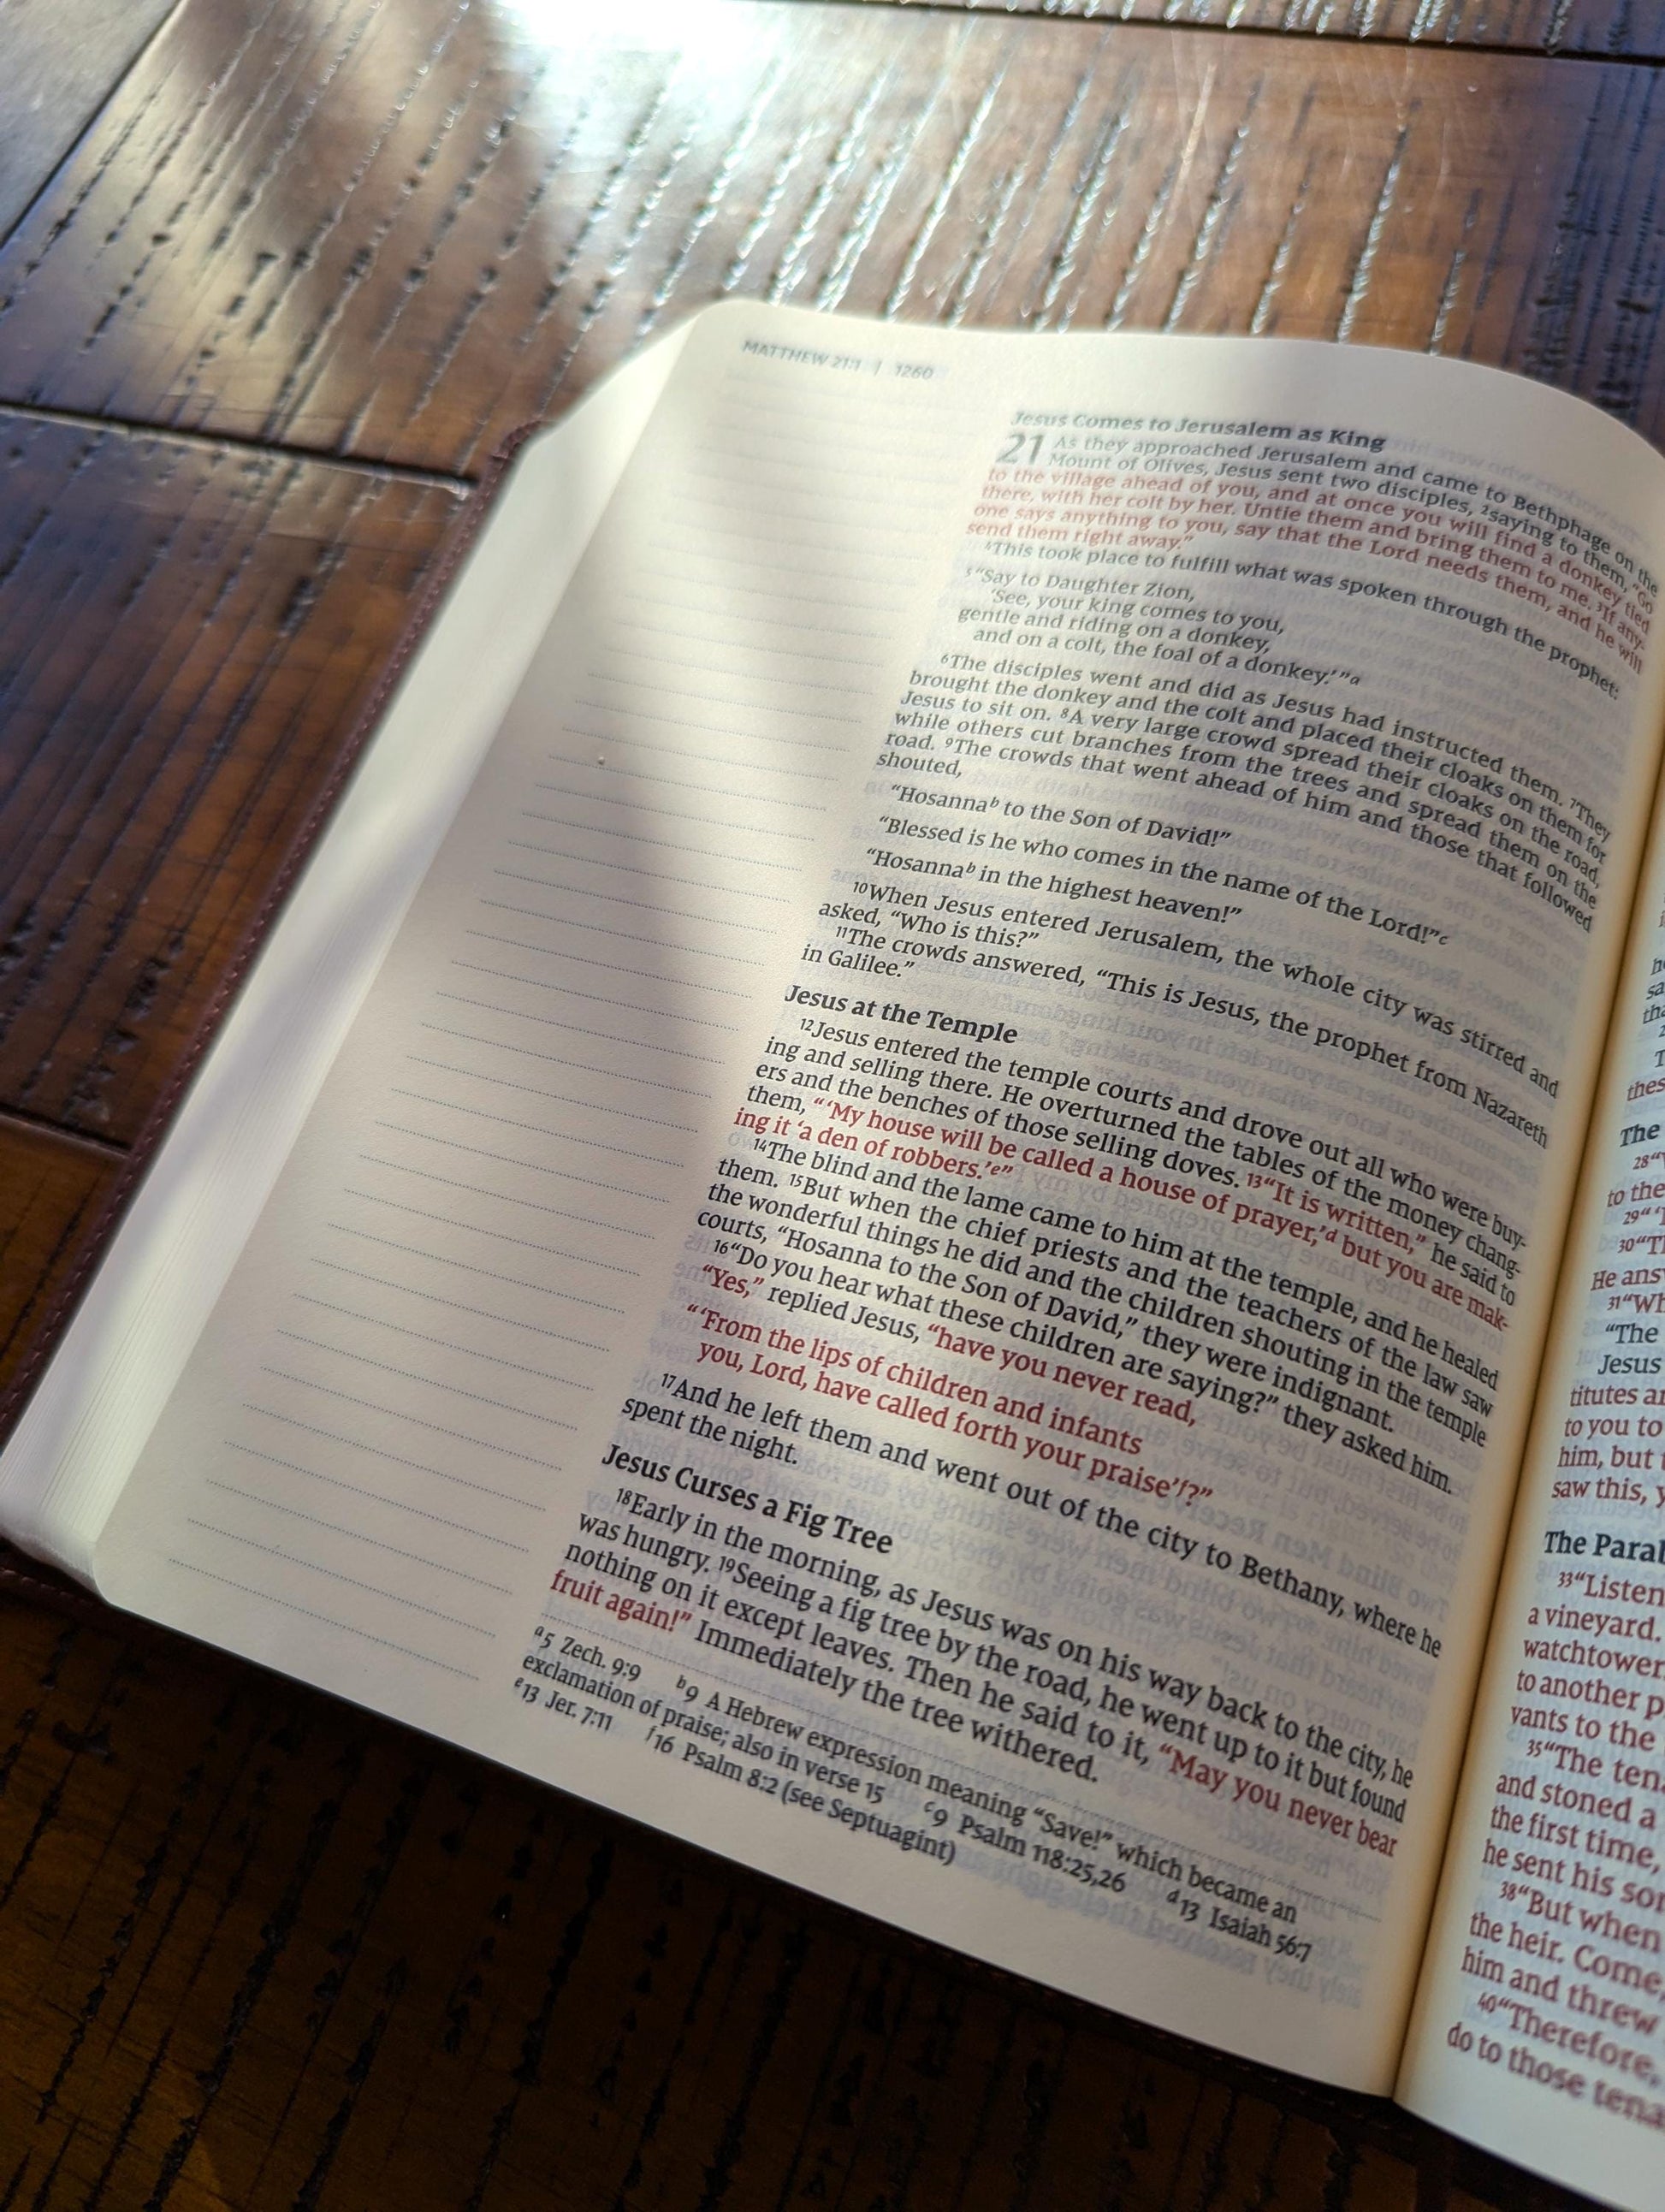 MATTHEW 21:1 | 1260
Jesus Comes to Jerusalem as King
21 As they approached Jerusalem and came to Bethphage on the
Mount of Olives, Jesus sent two disciples, ²saying to them, “Go
to the village ahead of you, and at once you will find a donkey tied
there, with her colt by her. Untie them and bring them to me. ³If any-
one says anything to you, say that the Lord needs them, and he will
send them right away.”
⁴This took place to fulfill what was spoken through the prophet:
⁵“Say to Daughter Zion,
‘See, your king comes to you,
gentle and riding on a donkey,
and on a colt, the foal of a donkey.’ ”a
⁶The disciples went and did as Jesus had instructed them. ⁷They
brought the donkey and the colt and placed their cloaks on them for
Jesus to sit on. ⁸A very large crowd spread their cloaks on the road,
while others cut branches from the trees and spread them on the
road. ⁹The crowds that went ahead of him and those that followed
shouted,
“Hosannab to the Son of David!”
“Blessed is he who comes in the name of the Lord!”c
“Hosannab in the highest heaven!”
¹⁰When Jesus entered Jerusalem, the whole city was stirred and
asked, “Who is this?”
¹¹The crowds answered, “This is Jesus, the prophet from Nazareth
in Galilee.”
Jesus at the Temple
¹²Jesus entered the temple courts and drove out all who were buy-
ing and selling there. He overturned the tables of the money chang-
ers and the benches of those selling doves. ¹³“It is written,” he said to
them, “‘My house will be called a house of prayer,’d but you are mak-
ing it ‘a den of robbers.’e”
¹⁴The blind and the lame came to him at the temple, and he healed
them. ¹⁵But when the chief priests and the teachers of the law saw
the wonderful things he did and the children shouting in the temple
courts, “Hosanna to the Son of David,” they were indignant.
¹⁶“Do you hear what these children are saying?” they asked him.
“Yes,” replied Jesus, “have you never read,
“‘From the lips of children and infants
you, Lord, have called forth your praise’f?”
¹⁷And he left them and went out of the city to Bethany, where he
spent the night.
Jesus Curses a Fig Tree
¹⁸Early in the morning, as Jesus was on his way back to the city, he
was hungry. ¹⁹Seeing a fig tree by the road, he went up to it but found
nothing on it except leaves. Then he said to it, “May you never bear
fruit again!” Immediately the tree withered.
a5 Zech. 9:9 b9 A Hebrew expression meaning “Save!” which became an
exclamation of praise; also in verse 15 c9 Psalm 118:25,26 d13 Isaiah 56:7
e13 Jer. 7:11 f16 Psalm 8:2 (see Septuagint)
The
28“
to the
29“
30“
He ans
31“Wh
“The
Jesus
titutes
to you to
him, but
saw this,
The Paral
33“Listen
a vineyard.
watchtower
to another p
vants to the
35“The ten
and stoned a
the first time,
he sent his so
38“But when
the heir. Come,
him and threw
40“Therefore,
do to those tena